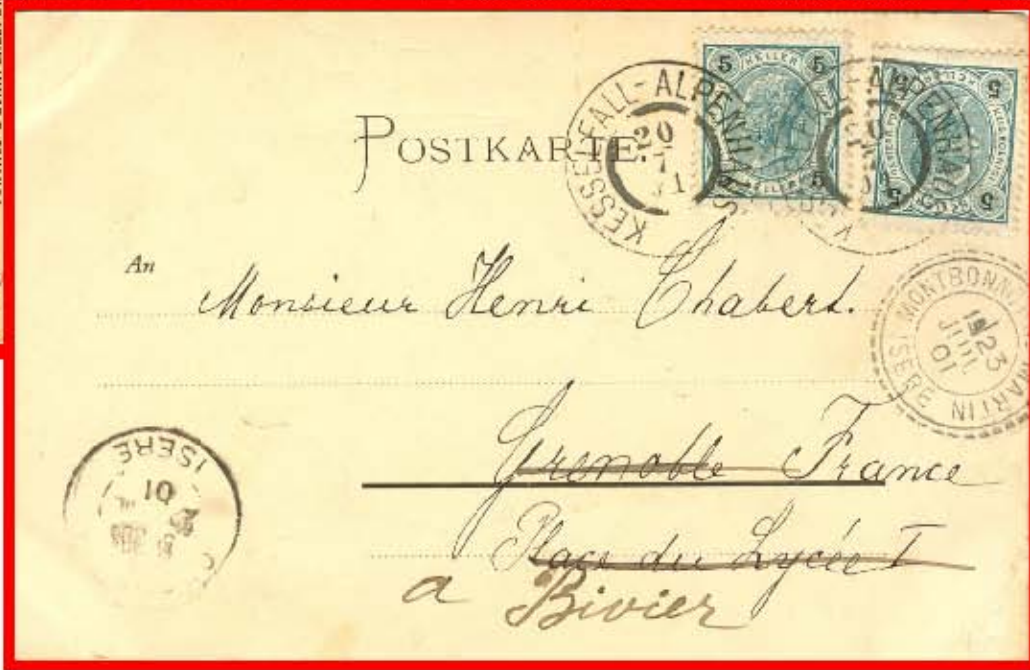 5 HELLER 5
5 5
KESSELFALL-ALPENHAUS
20
7
POSTKARTE
An
Monsieur Henri Chabert.
MONTBONNOT MARTIN
ISERE
23
JUIL
01
Grenoble France
Place du Lycée 1
a Bivier
ISERE
01